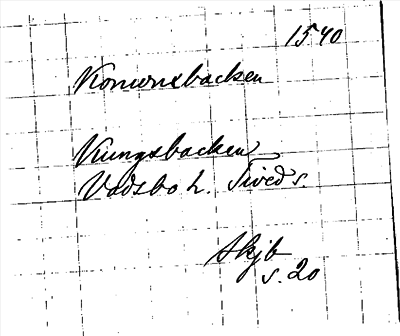 1540
Konunxbacken
Kungsbacken
Vadsbo h. Tiveds s.
Skjb
s. 20